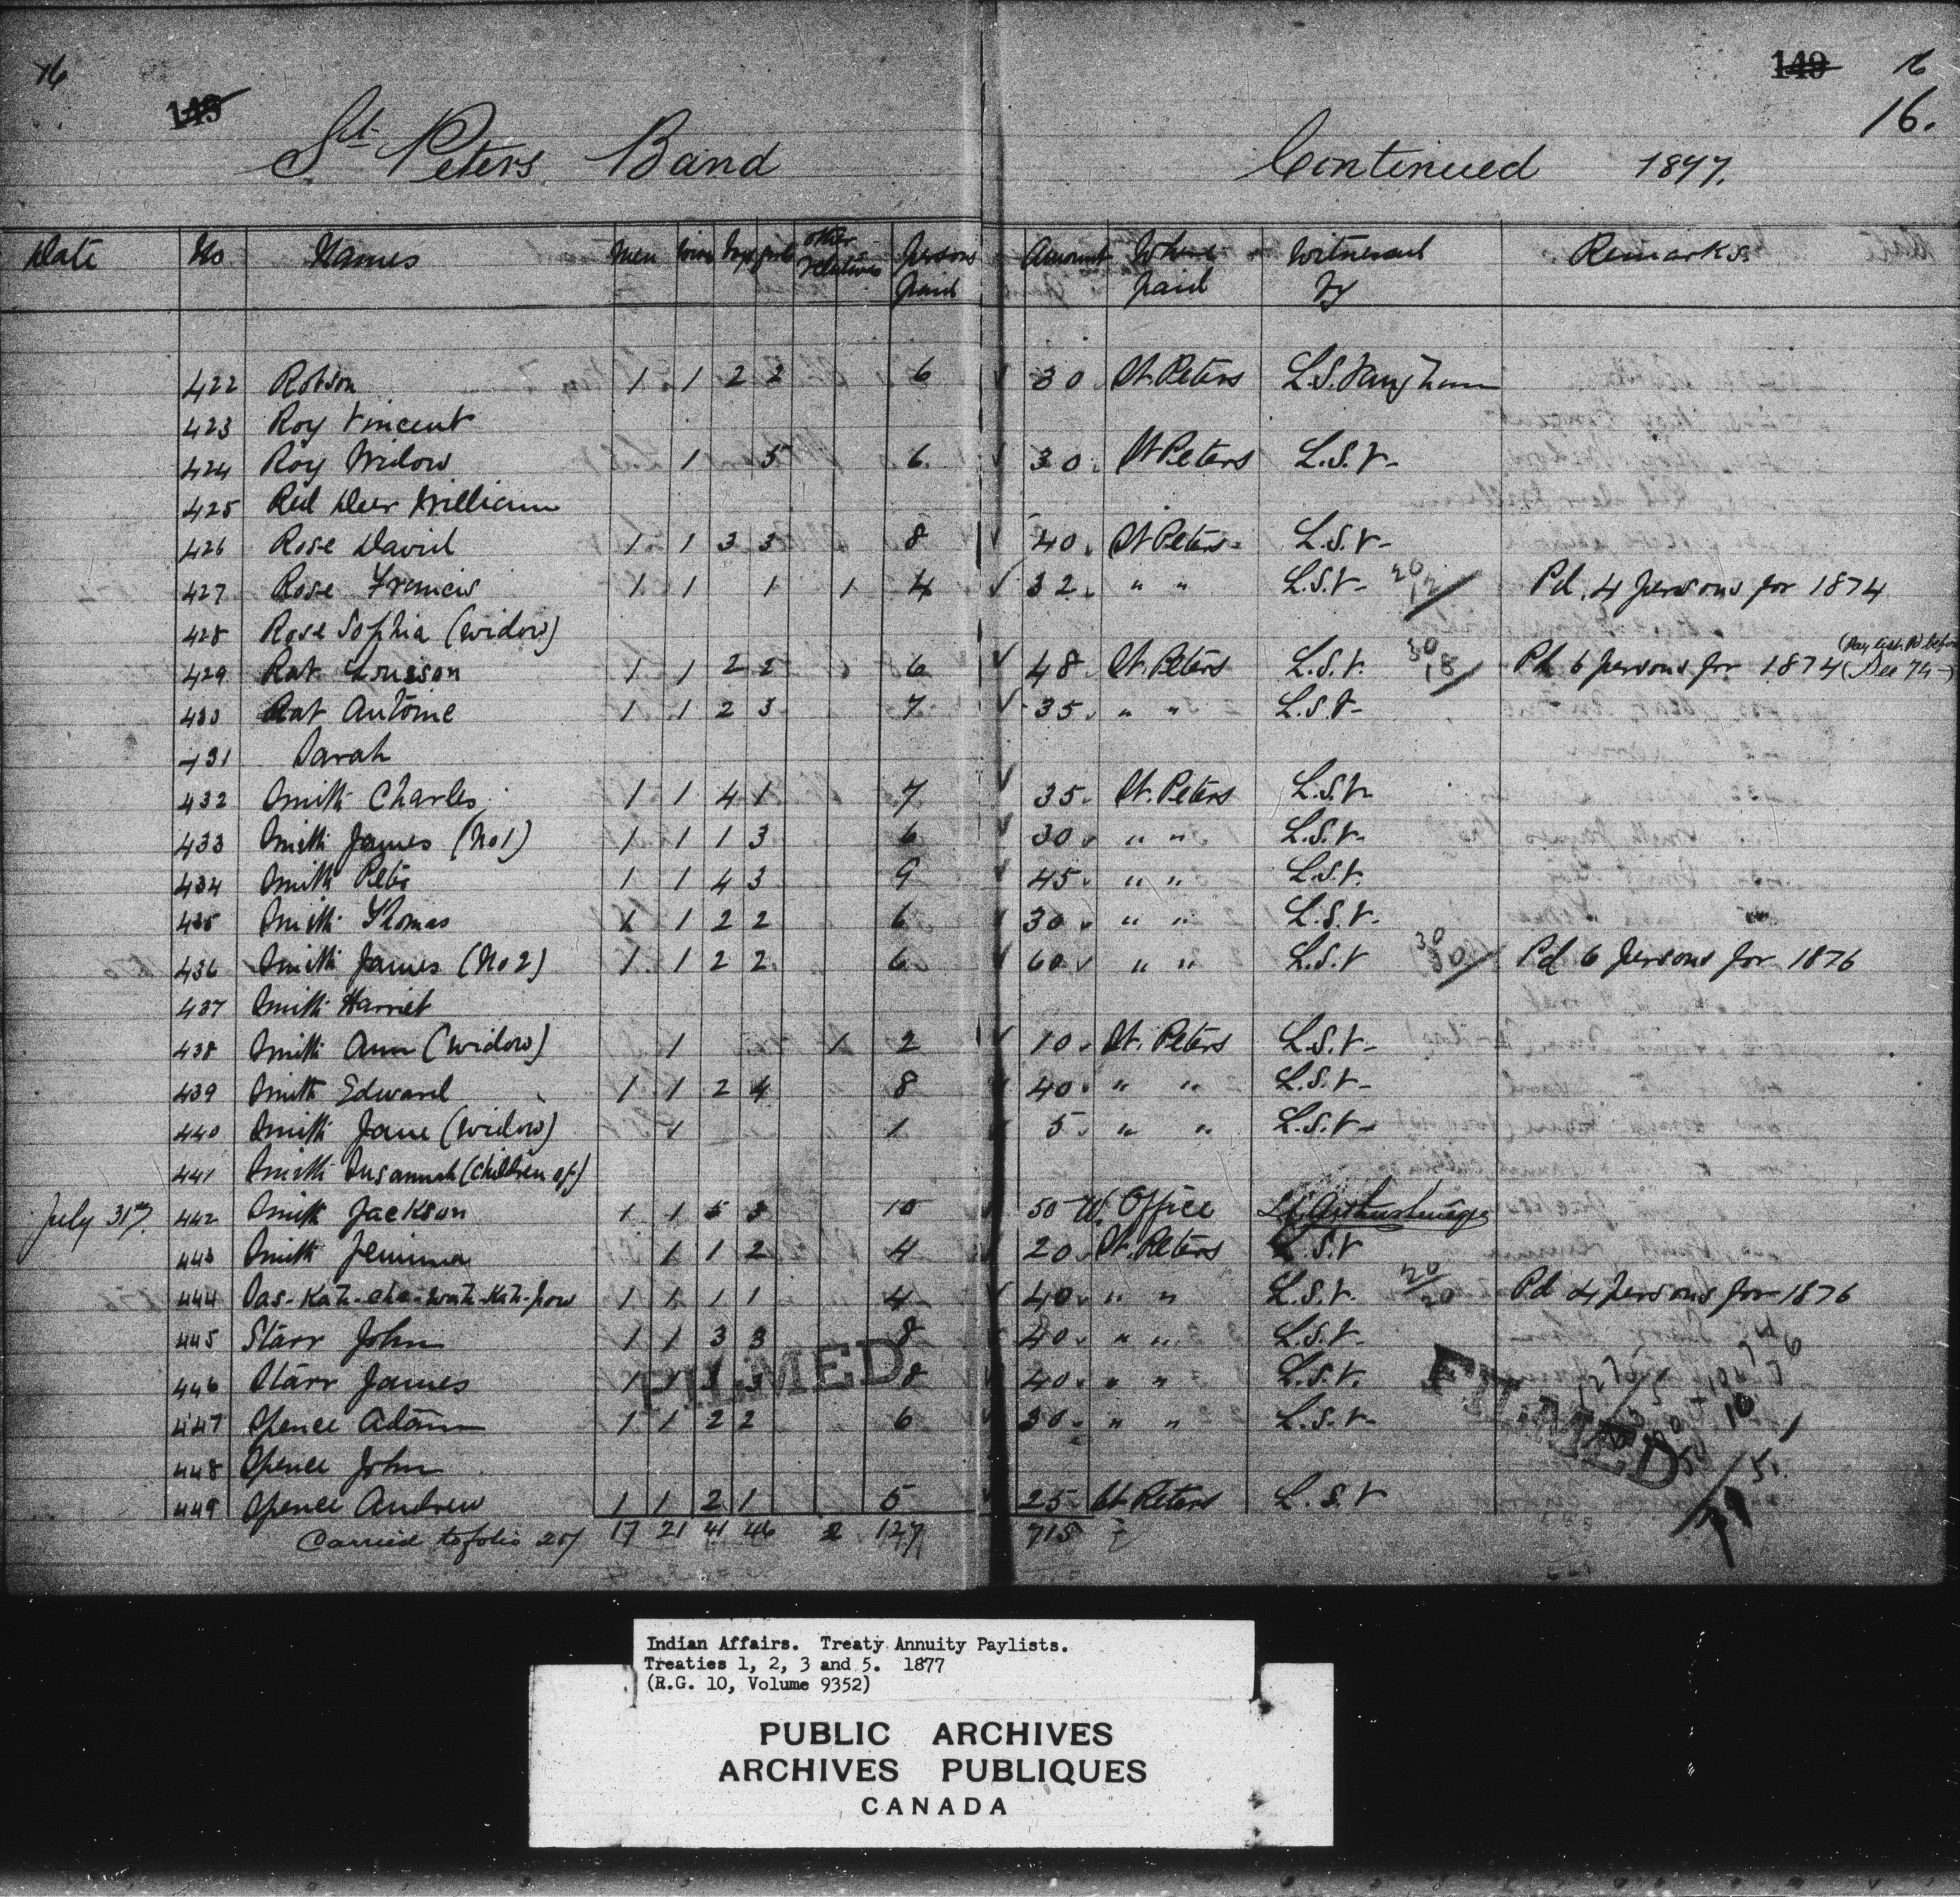 16 149 149 16
16.
St Peters Band Continued 1877.
Date No Names Men Women Boys Girls Other relatives Persons paid Amount Where paid Witnessed by Remarks
422 Robson 1 1 2 2 6 30 St. Peters L.S. Vaughan
423 Roy Vincent
424 Roy Widow 1 5 6 30 St Peters L.S.V-
425 Red Deer William
426 Rose David 1 1 3 3 8 40 St Peters L.S.V-
427 Rose Francis 1 1 1 1 4 32 " " L.S.V- 20/12 Pd. 4 persons for 1874
428 Rose Sophia (widow)
429 Rat Louison 1 1 2 2 6 48 St. Peters L.S.V. 30/18 Pd 6 persons for 1874 (Dec 74-)
430 Rat Antoine 1 1 2 3 7 35 " " L.S.V-
431 Sarah
432 Smith Charles 1 1 4 1 7 35 St. Peters L.S.V.
433 Smith James (No 1) 1 1 1 3 6 30 " " L.S.V.
434 Smith Peter 1 1 4 3 9 45 " " L.S.V.
435 Smith Thomas 1 1 2 2 6 30 " " L.S.V-
436 Smith James (No 2) 1 1 2 2 6 60 " " L.S.V 30/30 Pd 6 Persons for 1876
437 Smith Harriet
438 Smith Ann (widow) 1 1 2 10 St. Peters L.S.V-
439 Smith Edward 1 1 2 4 8 40 " " L.S.V-
440 Smith Jane (widow) 1 1 5 " " L.S.V-
441 Smith Susannah (children of)
July 31st 442 Smith Jackson 1 1 5 3 10 50 W. Office
443 Smith Jemima 1 1 2 4 20 St. Peters L.S.V
444 Sas-Katch-che-wah-Kah-pow 1 1 1 1 4 40 " " L.S.V. 20/20 Pd 4 persons for 1876
445 Starr John 1 1 3 3 8 40 " " L.S.V-
446 Starr James 1 1 3 3 8 40 " " L.S.V.
447 Spence Adam 1 1 2 2 6 30 " " L.S.V-
448 Spence John
449 Spence Andrew 1 1 2 1 5 25 St Peters L.S.V
Carried to folio 207 17 21 41 46 2 127 715
FILMED
FILMED
Indian Affairs. Treaty Annuity Paylists.
Treaties 1, 2, 3 and 5. 1877
(R.G. 10, Volume 9352)
PUBLIC ARCHIVES
ARCHIVES PUBLIQUES
CANADA